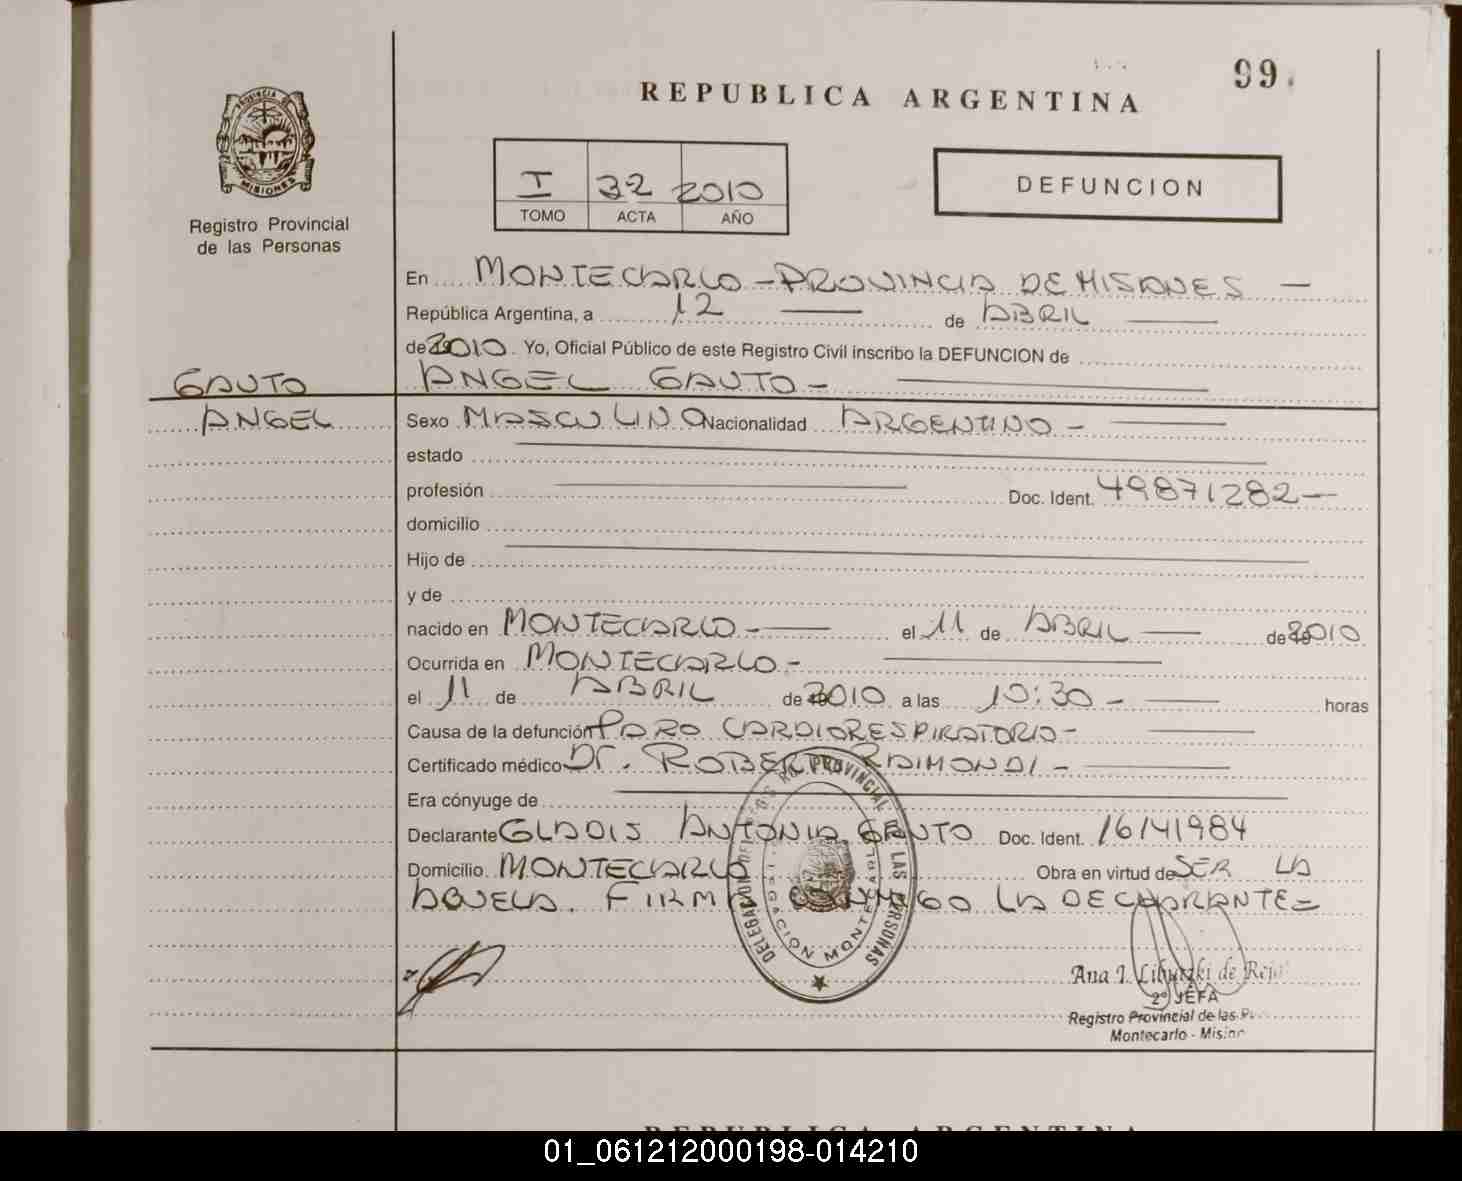 99.
REPUBLICA ARGENTINA
PROVINCIA DE
MISIONES
Registro Provincial
de las Personas
I 32 2010
TOMO ACTA AÑO
DEFUNCION
En MONTECARLO - PROVINCIA DE MISIONES —
República Argentina, a 12 — de ABRIL —
de 2010. Yo, Oficial Público de este Registro Civil inscribo la DEFUNCION de
GAUTO ANGEL GAUTO - —
ANGEL Sexo MASCULINO Nacionalidad ARGENTINO - —
estado —
profesión — Doc. Ident. 49871282 —
domicilio
Hijo de —
y de
nacido en MONTECARLO - — el 11 de ABRIL — de 2010
Ocurrida en MONTECARLO - —
el 11 de ABRIL de 2010 a las 10:30 - — horas
Causa de la defunción PARO CARDIORESPIRATORIO - —
Certificado médico Dr. ROBERTO RAIMONDI - —
Era cónyuge de —
Declarante GLADIS ANTONIA GAUTO Doc. Ident. 16141984
Domicilio MONTECARLO Obra en virtud de SER LA
ABUELA. FIRMA CONMIGO LA DECLARANTE =
PROVINCIAL DE LAS PERSONAS
DELEGACION MONTECARLO
Ana I. de
2º JEFA
Registro Provincial de las
Montecarlo -
REPUBLICA ARGENTINA
01_061212000198-014210